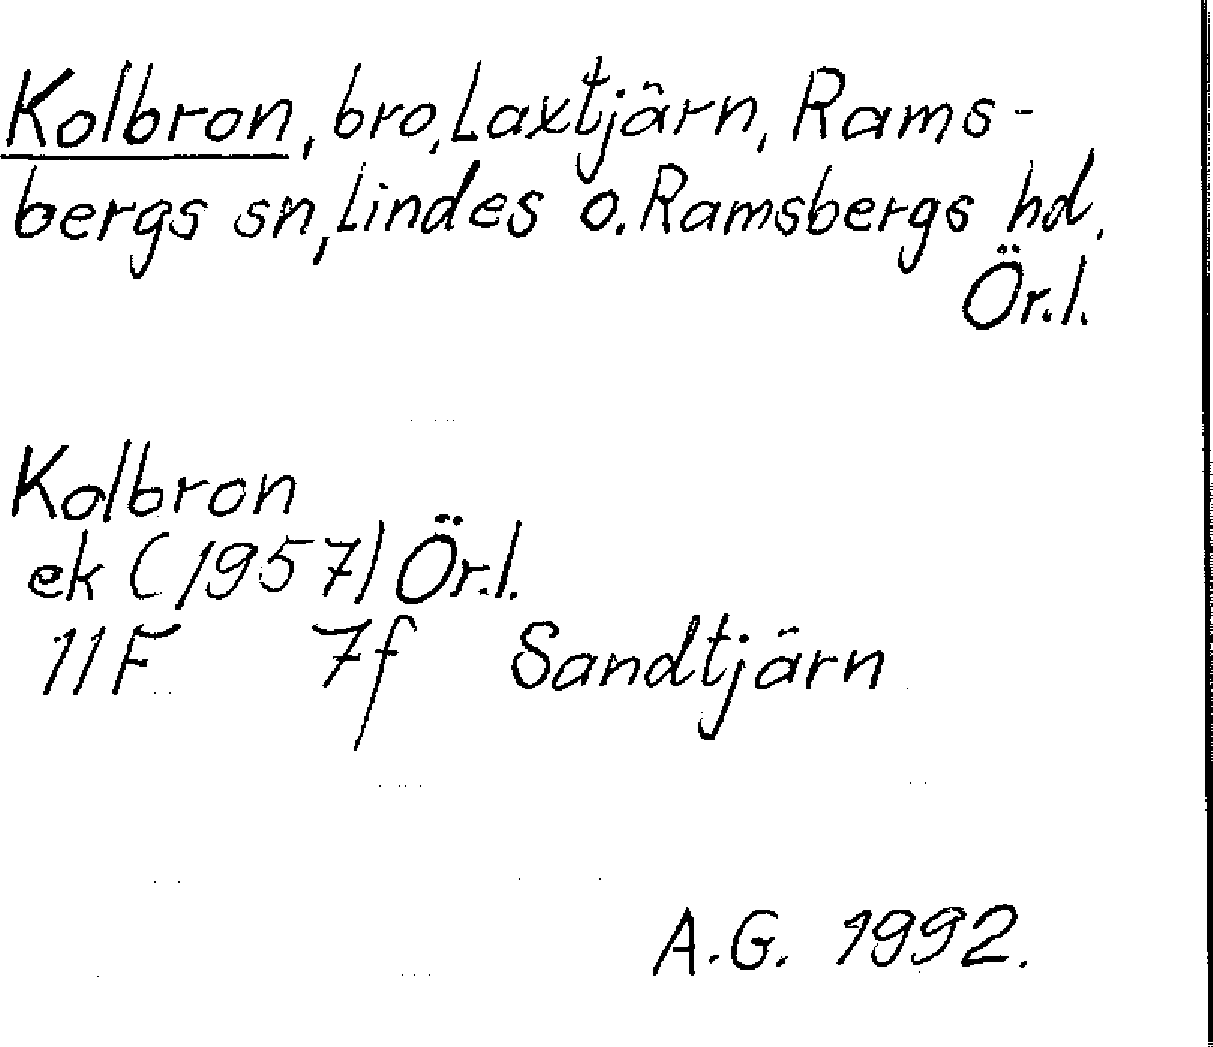 Kolbron, bro, Laxtjärn, Rams-
bergs sn, Lindes o. Ramsbergs hd.
Ör.l.
Kolbron
ek (1957) Ör.l.
11F 7f Sandtjärn
A.G. 1992.